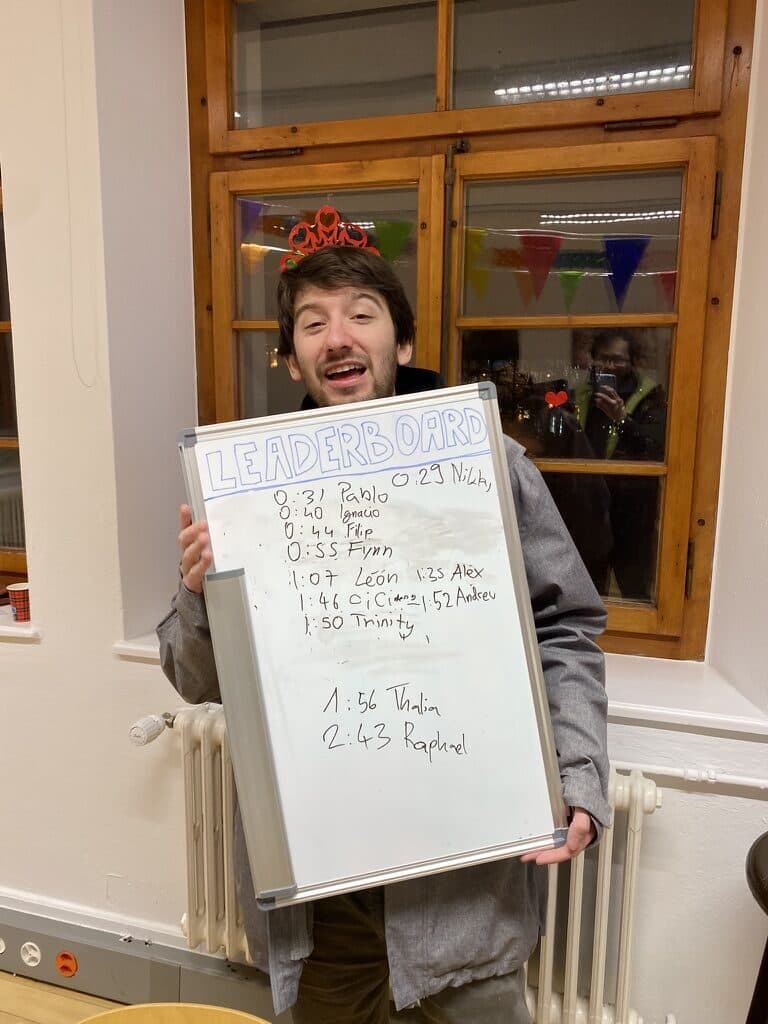 LEADERBOARD
0:29
0:31 Pablo
0:40 Ignacio
0:44 Filip
0:55 Flynn
1:07 León 1:35 Alex
1:46 CiCi 1:52 Andrew
1:50 Trinity
1:56 Thalia
2:43 Raphael